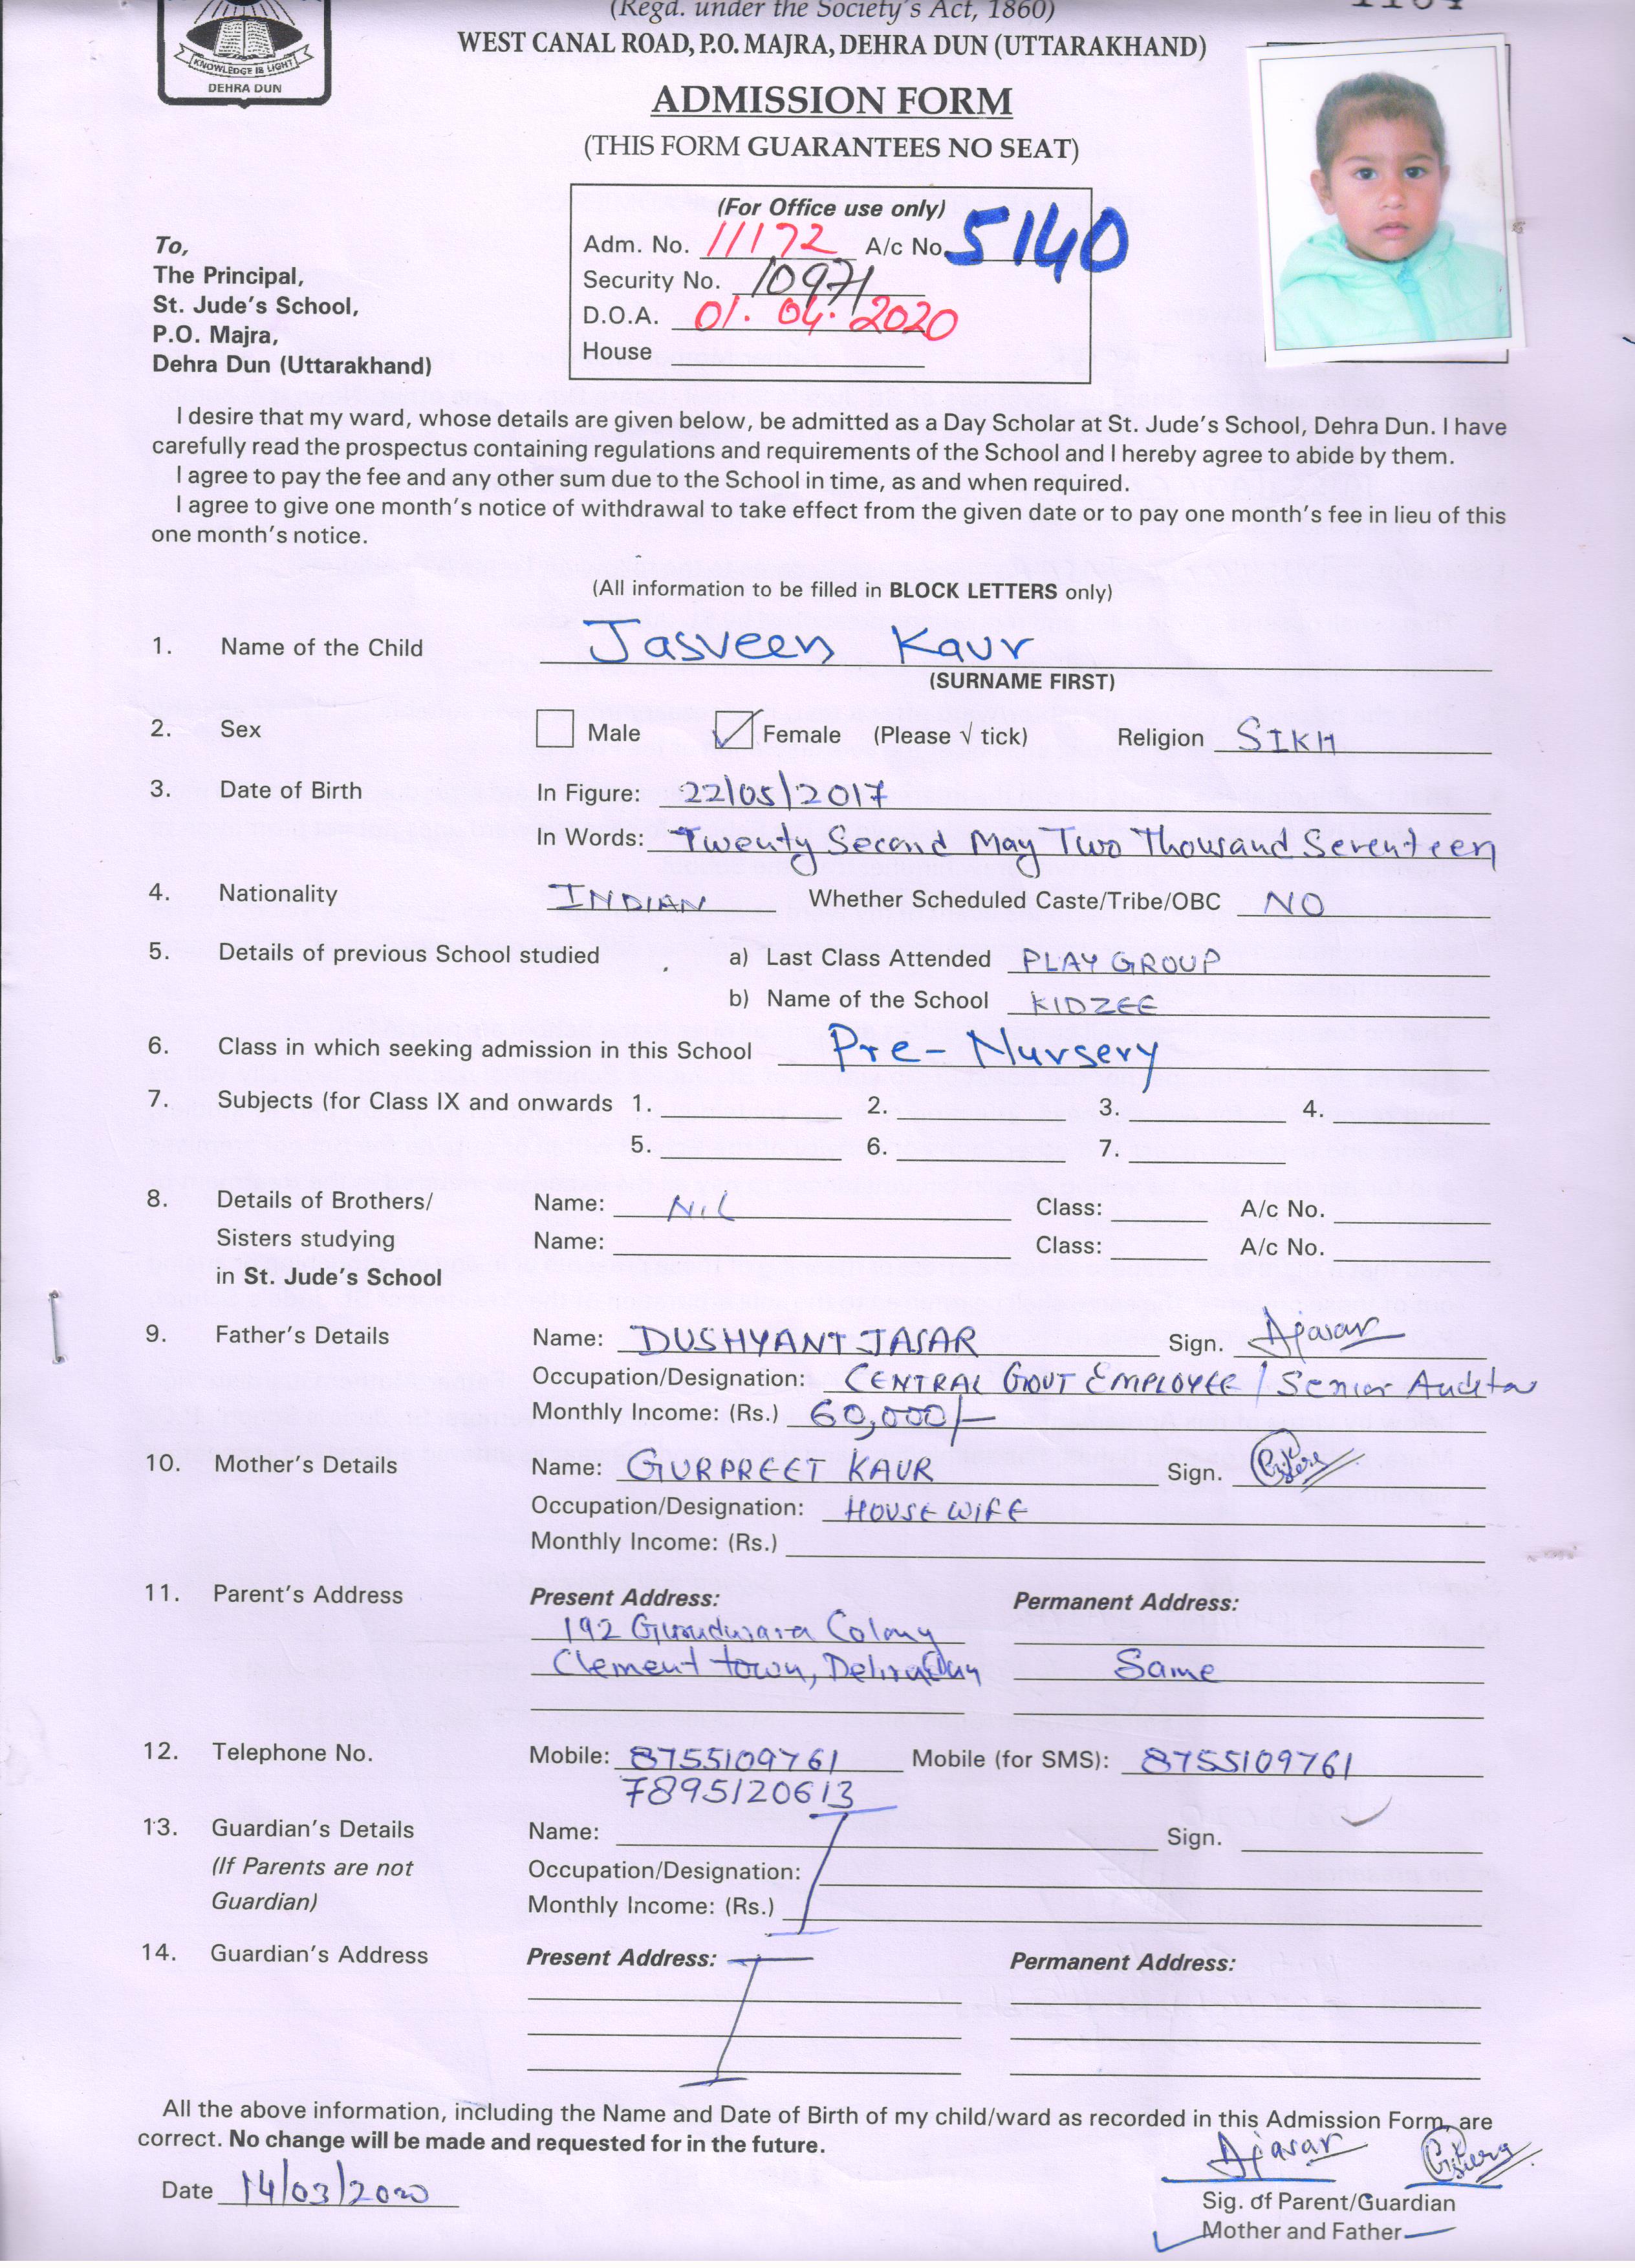 (Regd. under the Society's Act, 1860)
WEST CANAL ROAD, P.O. MAJRA, DEHRA DUN (UTTARAKHAND)
KNOWLEDGE IS LIGHT
DEHRA DUN
ADMISSION FORM
(THIS FORM GUARANTEES NO SEAT)
(For Office use only)
Adm. No. 11172 A/c No. 5140
Security No. 10971
D.O.A. 01.04.2020
House
To,
The Principal,
St. Jude's School,
P.O. Majra,
Dehra Dun (Uttarakhand)
I desire that my ward, whose details are given below, be admitted as a Day Scholar at St. Jude's School, Dehra Dun. I have
carefully read the prospectus containing regulations and requirements of the School and I hereby agree to abide by them.
I agree to pay the fee and any other sum due to the School in time, as and when required.
I agree to give one month's notice of withdrawal to take effect from the given date or to pay one month's fee in lieu of this
one month's notice.
(All information to be filled in BLOCK LETTERS only)
1. Name of the Child Jasveen Kaur
(SURNAME FIRST)
2. Sex Male Female (Please √ tick) Religion SIKH
3. Date of Birth In Figure: 22/05/2017
In Words: Twenty Second May Two Thousand Seventeen
4. Nationality INDIAN Whether Scheduled Caste/Tribe/OBC NO
5. Details of previous School studied a) Last Class Attended PLAY GROUP
b) Name of the School KIDZEE
6. Class in which seeking admission in this School Pre-Nursery
7. Subjects (for Class IX and onwards 1. 2. 3. 4.
5. 6. 7.
8. Details of Brothers/ Name: NiL Class: A/c No.
Sisters studying Name: Class: A/c No.
in St. Jude's School
9. Father's Details Name: DUSHYANT JASAR Sign. Djasar
Occupation/Designation: CENTRAL GOVT EMPLOYEE / Senior Auditor
Monthly Income: (Rs.) 60,000/-
10. Mother's Details Name: GURPREET KAUR Sign.
Occupation/Designation: HOUSEWIFE
Monthly Income: (Rs.)
11. Parent's Address Present Address: Permanent Address:
192 Gurudwara Colony
Clement town, DehraDun Same
12. Telephone No. Mobile: 8755109761 Mobile (for SMS): 8755109761
7895120613
13. Guardian's Details Name: Sign.
(If Parents are not Occupation/Designation:
Guardian) Monthly Income: (Rs.)
14. Guardian's Address Present Address: Permanent Address:
All the above information, including the Name and Date of Birth of my child/ward as recorded in this Admission Form, are
correct. No change will be made and requested for in the future.
Djasar
Date 14/03/2020
Sig. of Parent/Guardian
Mother and Father